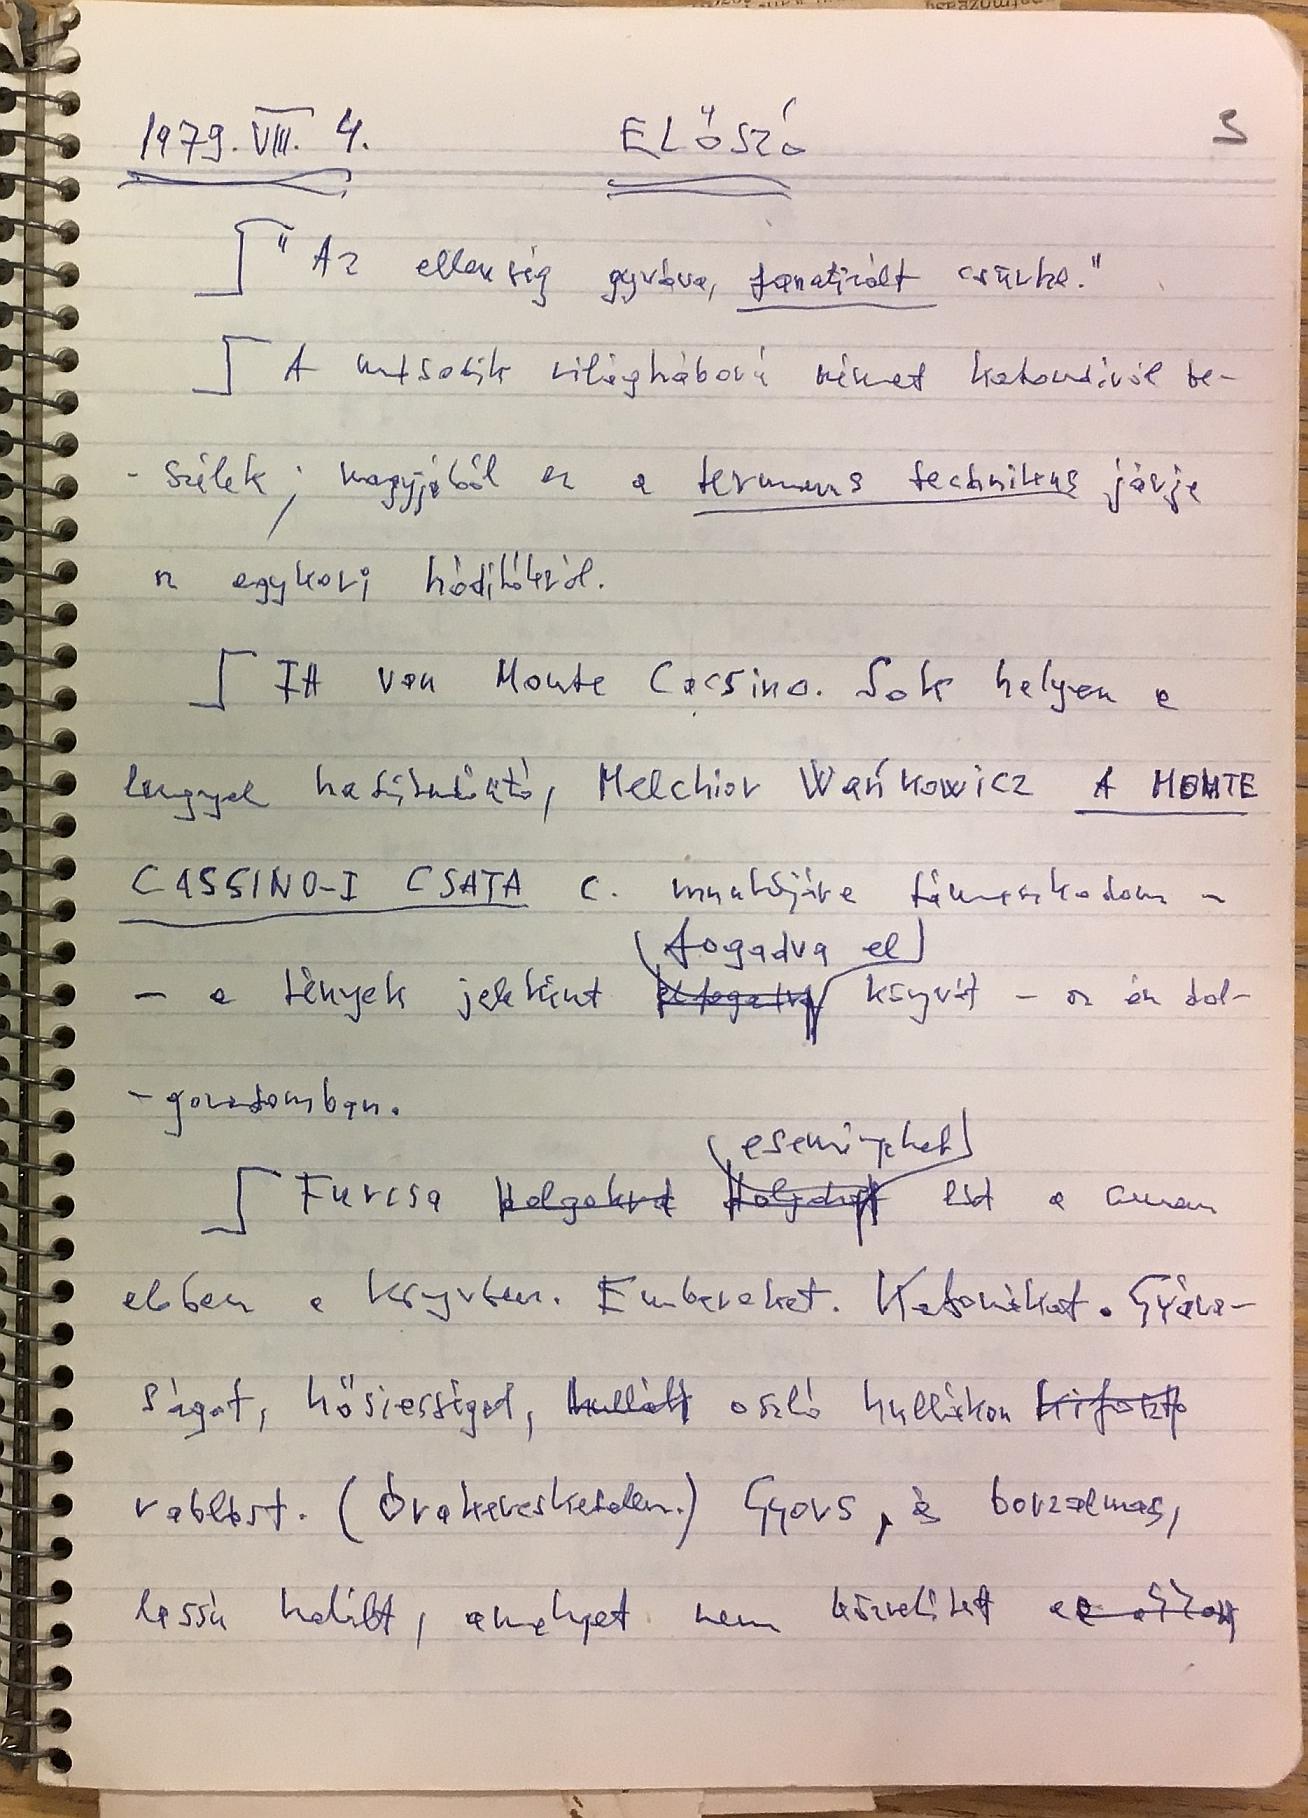 1979. VIII. 4. ELŐSZÓ 3
"Az ellenség gyváva, fanatizált csürhe."
A második világháború német katonáiról be-
-szélek; nagyjából ez a terminus technikus járja
az egykori hódítókról.
Itt van Monte Cassino. Sok helyen a
lengyel haditudósító, Melchior Wańkowicz A MONTE
CASSINO-I CSATA c. munkájára támaszkodom -
fogadva el
- a tények jeleként elfogadva könyvét - az én dol-
-gozatomban.
eseményeket
Furcsa dolgokat dolgokat lát a
ebben a könyvben. Embereket. Katonákat. Gyáva-
ságot, hősiességet, hullát oszló hullákon kifosztó
rablást. (Órakereskedelem.) Gyors, és borzalmas,
lassú halált, amelyet nem közvetített